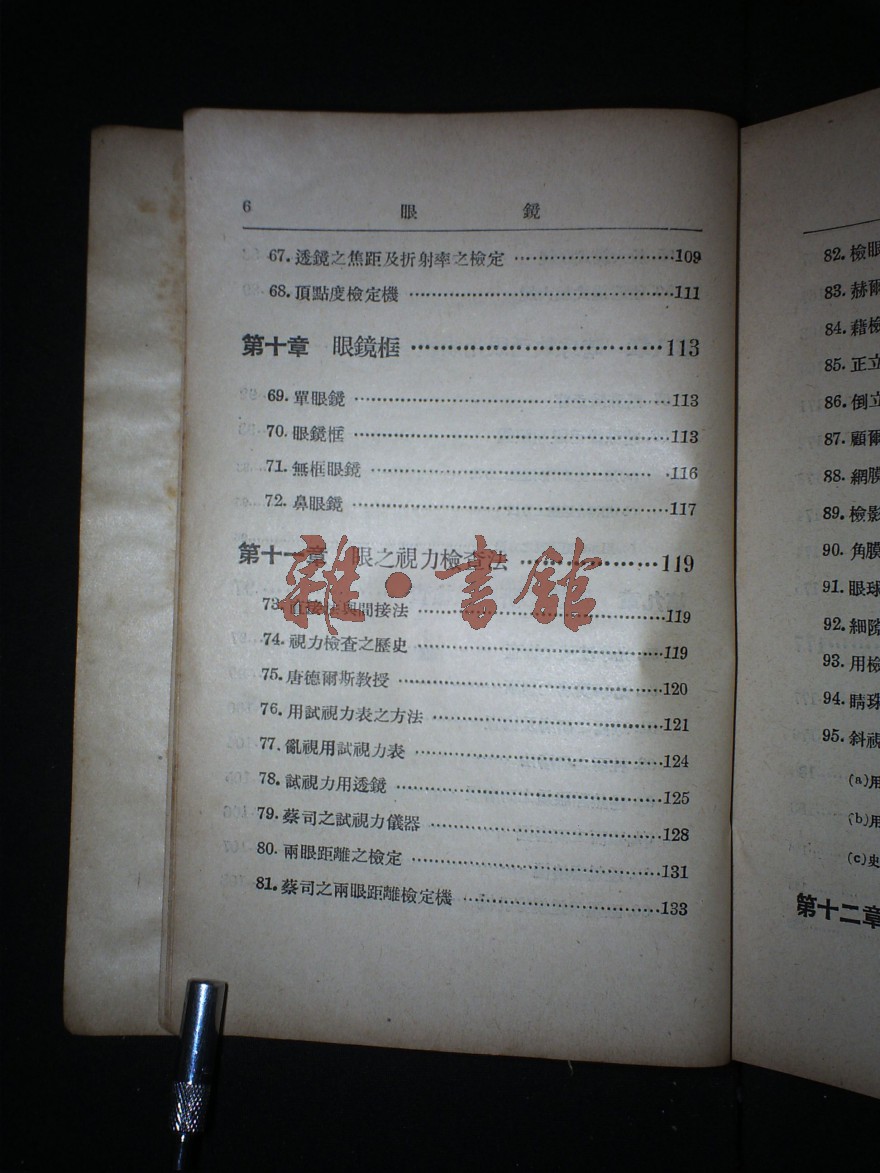 6 眼 鏡
67. 透鏡之焦距及折射率之檢定 ………………………109
68. 頂點度檢定機 ………………………111
第十章 眼鏡框 ………………………113
69. 單眼鏡 ………………………113
70. 眼鏡框 ………………………113
71. 無框眼鏡 ………………………116
72. 鼻眼鏡 ………………………117
第十一章 眼之視力檢查法 ………………119
73. 直接法與間接法 ………………………119
74. 視力檢查之歷史 ………………………119
75. 唐德爾斯教授 ………………………120
76. 用試視力表之方法 ………………………121
77. 亂視用試視力表 ………………………124
78. 試視力用透鏡 ………………………125
79. 蔡司之試視力儀器 ………………………128
80. 兩眼距離之檢定 ………………………131
81. 蔡司之兩眼距離檢定機 ………………………133
雜·書館
82. 檢眼
83. 赫爾
84. 藉檢
85. 正立
86. 倒立
87. 顧爾
88. 網膜
89. 檢影
90. 角膜
91. 眼球
92. 細隙
93. 用檢
94. 睛珠
95. 斜視
(a) 用
(b) 用
(c) 史
第十二章